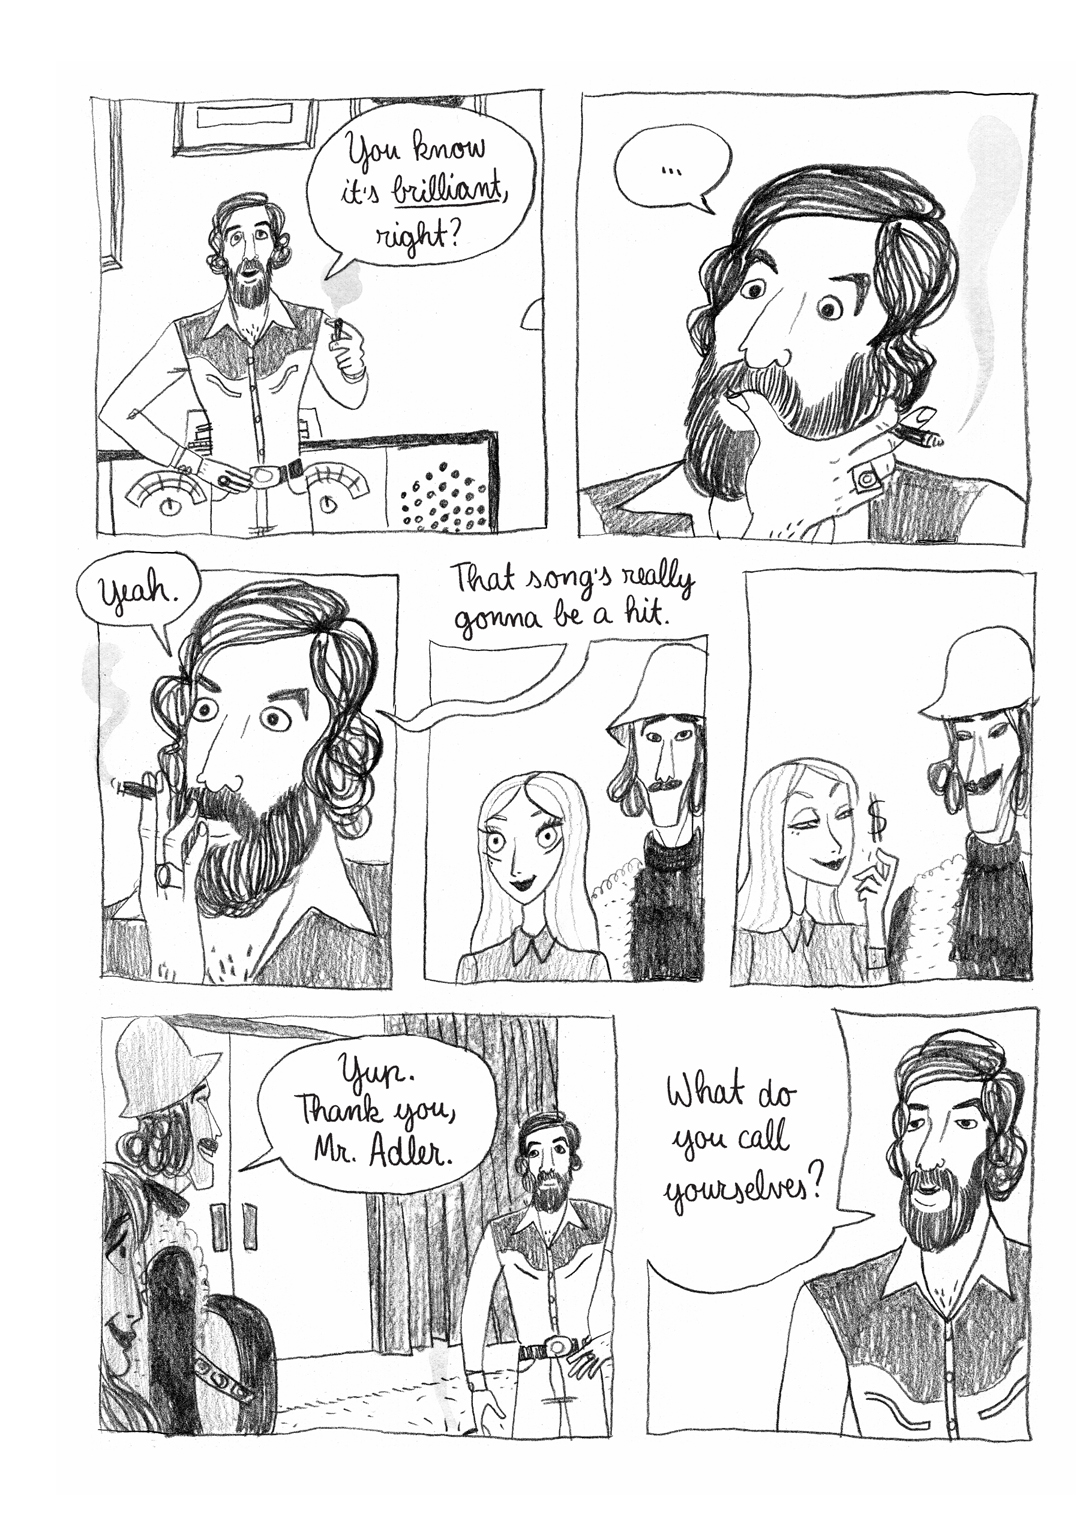 You know
it's brilliant,
right?
...
Yeah.
That song's really
gonna be a hit.
$
Yup.
Thank you,
Mr. Adler.
What do
you call
yourselves?